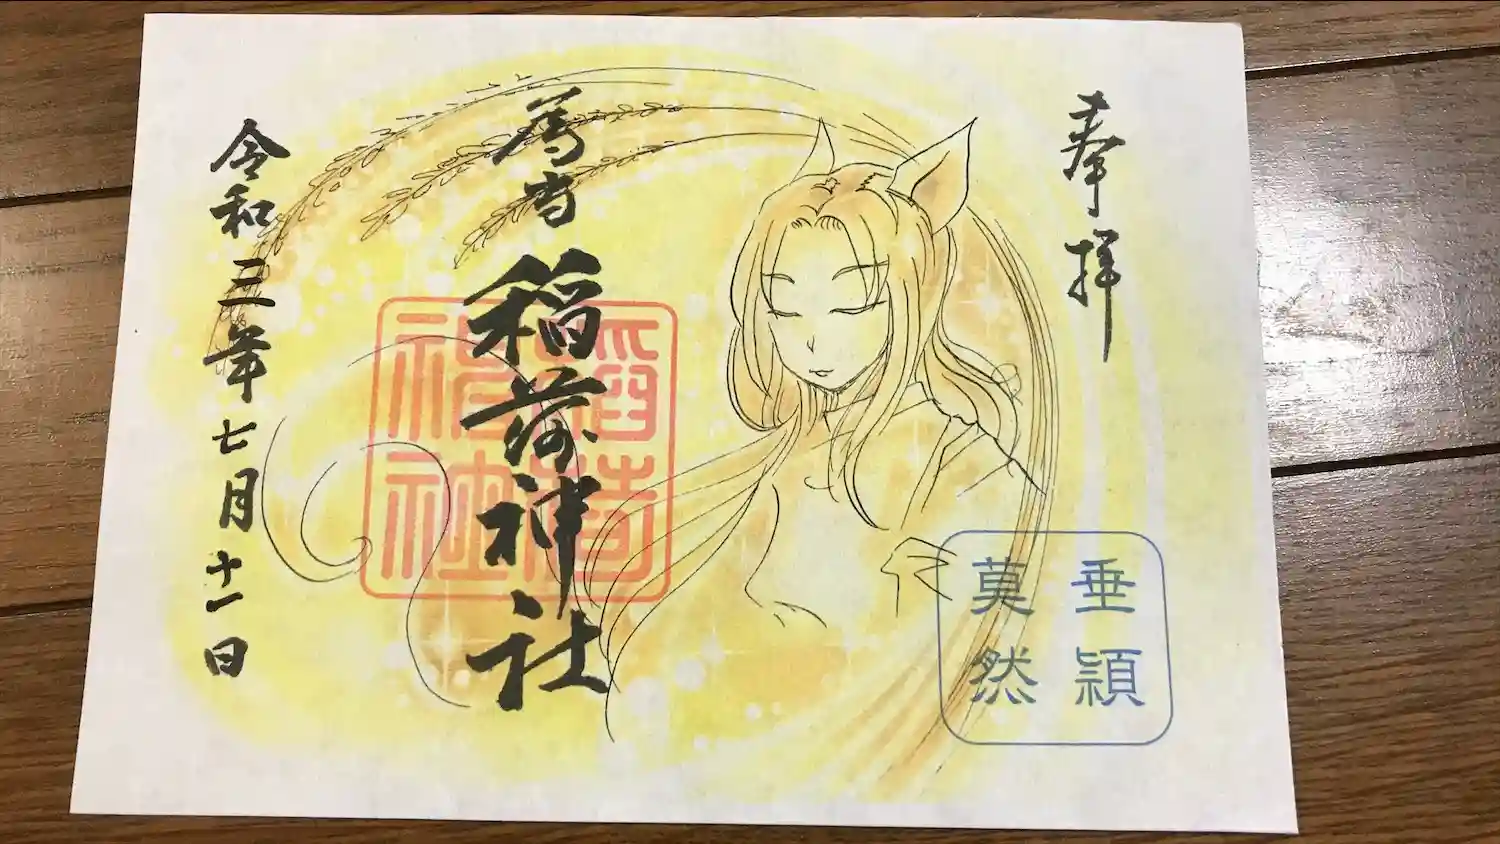 奉拝
垂穎
莫然
稲荷神社
稲荷
神社
令和三年七月十一日